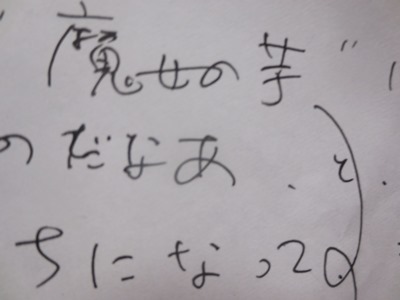 魔女の芋”
のだなあ、と、
ちになって